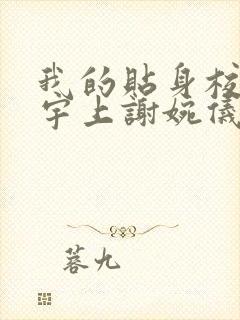 我的貼身校
宇上謝婉儀
蓉九